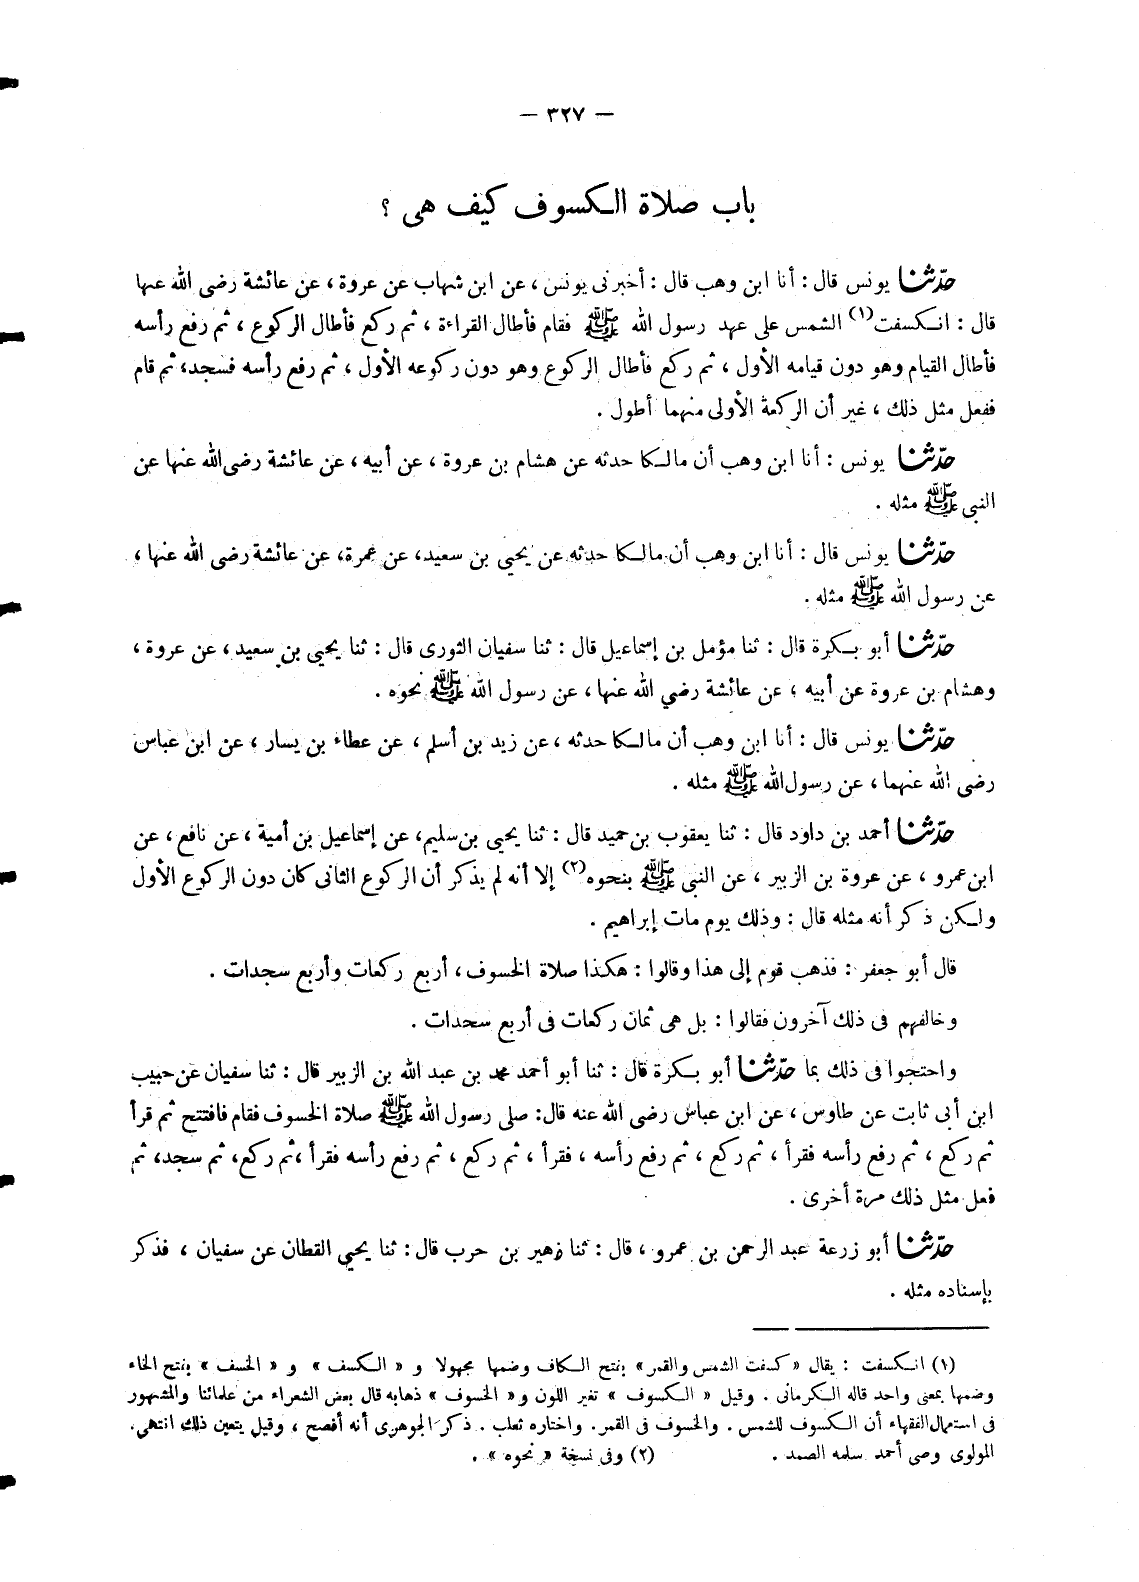 — ٣٢٧ —
باب صلاة الكسوف كيف هى ؟
حدّثنا يونس قال : أنا ابن وهب قال : أخبرنى يونس ، عن ابن شهاب عن عروة ، عن عائشة رضى الله عنها
قال : انكسفت(١) الشمس على عهد رسول الله ﷺ فقام فأطال القراءة ، ثم ركع فأطال الركوع ، ثم رفع رأسه
فأطال القيام وهو دون قيامه الأول ، ثم ركع فأطال الركوع وهو دون ركوعه الأول ، ثم رفع رأسه فسجد، ثم قام
ففعل مثل ذلك ، غير أن الركعة الأولى منهما أطول .
حدّثنا يونس : أنا ابن وهب أن مالكا حدثه عن هشام بن عروة ، عن أبيه ، عن عائشة رضى الله عنها عن
النبى ﷺ مثله .
حدّثنا يونس قال : أنا ابن وهب أن مالكا حدثه عن يحيى بن سعيد، عن عمرة، عن عائشة رضى الله عنها ،
عن رسول الله ﷺ مثله .
حدّثنا أبو بكرة قال : ثنا مؤمل بن إسماعيل قال : ثنا سفيان الثورى قال : ثنا يحيى بن سعيد ، عن عروة ،
وهشام بن عروة عن أبيه ، عن عائشة رضي الله عنها ، عن رسول الله ﷺ نحوه .
حدّثنا يونس قال : أنا ابن وهب أن مالكا حدثه ، عن زيد بن أسلم ، عن عطاء بن يسار ، عن ابن عباس
رضى الله عنهما ، عن رسول الله ﷺ مثله .
حدّثنا أحمد بن داود قال : ثنا يعقوب بن حميد قال : ثنا يحيى بن سليم، عن إسماعيل بن أمية ، عن نافع ، عن
ابن عمرو ، عن عروة بن الزبير ، عن النبى ﷺ بنحوه(٢) إلا أنه لم يذكر أن الركوع الثانى كان دون الركوع الأول
ولكن ذكر أنه مثله قال : وذلك يوم مات إبراهيم .
قال أبو جعفر : فذهب قوم إلى هذا وقالوا : هكذا صلاة الخسوف ، أربع ركعات وأربع سجدات .
وخالفهم فى ذلك آخرون فقالوا : بل هى ثمان ركعات فى أربع سجدات .
واحتجوا فى ذلك بما حدّثنا أبو بكرة قال : ثنا أبو أحمد محمد بن عبد الله بن الزبير قال : ثنا سفيان عن حبيب
ابن أبى ثابت عن طاوس ، عن ابن عباس رضى الله عنه قال: صلى رسول الله ﷺ صلاة الخسوف فقام فافتتح ثم قرأ
ثم ركع ، ثم رفع رأسه فقرأ ، ثم ركع ، ثم رفع رأسه ، فقرأ ، ثم ركع ، ثم رفع رأسه فقرأ ،ثم ركع، ثم سجد، ثم
فعل مثل ذلك مرة أخرى .
حدّثنا أبو زرعة عبد الرحمن بن عمرو ، قال : ثنا زهير بن حرب قال : ثنا يحيي القطان عن سفيان ، فذكر
بإسناده مثله .
(١) انكسفت : يقال «كسفت الشمس والقمر» بفتح الكاف وضمها مجهولا و « الكسف » و « الخسف » بفتح الخاء
وضمها بمعنى واحد قاله الكرمانى . وقيل « الكسوف » تغير اللون و« الخسوف » ذهابه قال بعض الشعراء من علمائنا والمشهور
فى استعمال الفقهاء أن الكسوف للشمس . والخسوف فى القمر. واختاره ثعلب . ذكر الجوهرى أنه أفصح ، وقيل يتعين ذلك انتهى.
المولوى وصى أحمد سلمه الصمد . (٢) وفى نسخة « نحوه » .